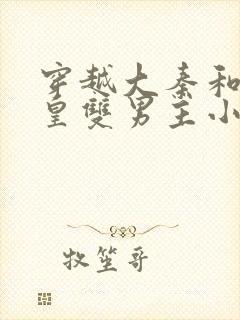 穿越大秦和
皇雙男主小
牧笙哥